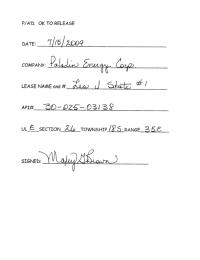 P/A'D, OK TO RELEASE
DATE: 7/15/2009
COMPANY: Paladin Energy Corp
LEASE NAME and # Lea J State #1
API# 30-025-03138
UL E SECTION 26 TOWNSHIP 18S RANGE 35E
SIGNED: